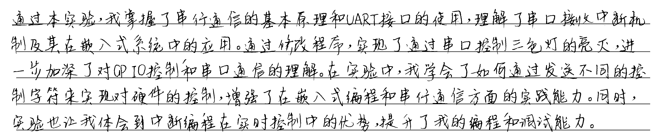 通过本实验,我掌握了串行通信的基本原理和UART接口的使用,理解了串口接收中断机
制及其在嵌入式系统中的应用。通过修改程序,实现了通过串口控制三色灯的亮灭,进
一步加深了对GPIO控制和串口通信的理解。在实验中,我学会了如何通过发送不同的控
制字符来实现对硬件的控制,增强了在嵌入式编程和串行通信方面的实践能力。同时,
实验也让我体会到中断编程在实时控制中的优势,提升了我的编程和调试能力。